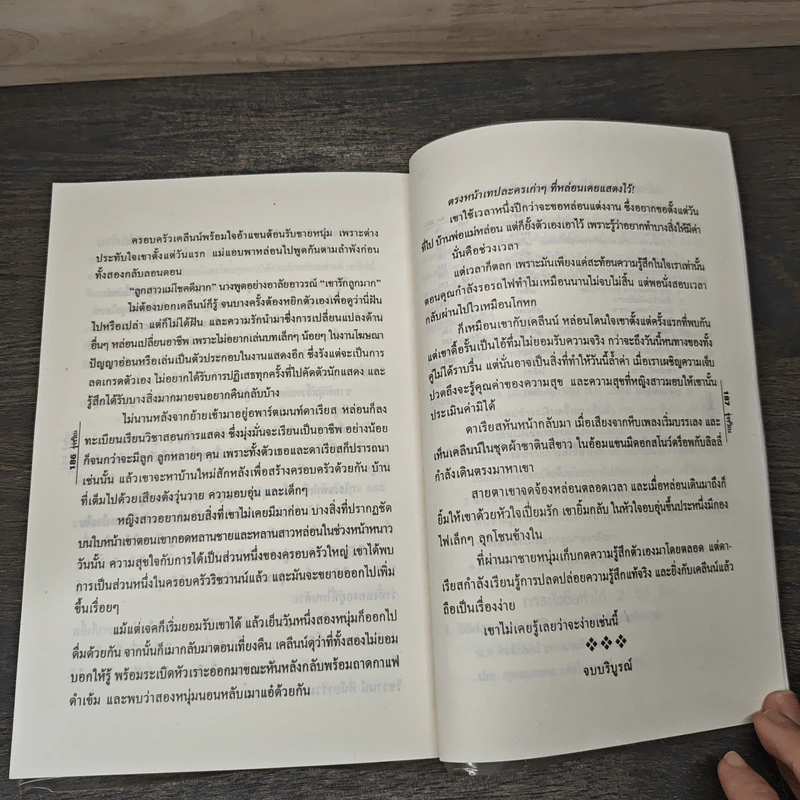 ครอบครัวเคลีนน์พร้อมใจอ้าแขนต้อนรับชายหนุ่ม เพราะต่าง
ประทับใจเขาตั้งแต่วันแรก แม่แอบพาหล่อนไปพูดกันตามลำพังก่อน
ทั้งสองกลับลอนดอน
“ลูกสาวแม่โชคดีมาก” นางพูดอย่างอาลัยอาวรณ์ “เขารักลูกมาก”
ไม่ต้องบอกเคลีนน์ก็รู้ จนบางครั้งต้องหยิกตัวเองเพื่อดูว่านี่ฝัน
ไปหรือเปล่า แต่ก็ไม่ได้ฝัน และความรักนำมาซึ่งการเปลี่ยนแปลงด้าน
อื่นๆ หล่อนเปลี่ยนอาชีพ เพราะไม่อยากเล่นบทเล็กๆ น้อยๆ ในงานโฆษณา
ปัญญาอ่อนหรือเล่นเป็นตัวประกอบในงานแสดงอีก ซึ่งรังแต่จะเป็นการ
ลดเกรดตัวเอง ไม่อยากได้รับการปฏิเสธทุกครั้งที่ไปคัดตัวนักแสดง และ
รู้สึกได้รับบางสิ่งมากมายจนอยากคืนกลับบ้าง
ไม่นานหลังจากย้ายเข้ามาอยู่อพาร์ตเมนท์ดาเรียส หล่อนก็ลง
ทะเบียนเรียนวิชาสอนการแสดง ซึ่งมุ่งมั่นจะเรียนเป็นอาชีพ อย่างน้อย
ก็จนกว่าจะมีลูก ลูกหลายๆ คน เพราะทั้งตัวเธอและดาเรียสก็ปรารถนา
เช่นนั้น แล้วเขาจะหาบ้านใหม่สักหลังเพื่อสร้างครอบครัวด้วยกัน บ้าน
ที่เต็มไปด้วยเสียงดังวุ่นวาย ความอบอุ่น และเด็กๆ
หญิงสาวอยากมอบสิ่งที่เขาไม่เคยมีมาก่อน บางสิ่งที่ปรากฏชัด
บนใบหน้าเขาตอนเขากอดหลานชายและหลานสาวหล่อนในช่วงหน้าหนาว
วันนั้น ความสุขใจกับการได้เป็นส่วนหนึ่งของครอบครัวใหญ่ เขาได้พบ
การเป็นส่วนหนึ่งในครอบครัวริชวานน์แล้ว และมันจะขยายออกไปเพิ่ม
ขึ้นเรื่อยๆ
แม้แต่เจคก็เริ่มยอมรับเขาได้ แล้วเย็นวันหนึ่งสองหนุ่มก็ออกไป
ดื่มด้วยกัน จากนั้นก็เมากลับมาตอนเที่ยงคืน เคลีนน์ดุว่าที่ทั้งสองไม่ยอม
บอกให้รู้ พร้อมระเบิดหัวเราะออกมาขณะหันหลังกลับพร้อมถาดกาแฟ
ดำเข้ม และพบว่าสองหนุ่มนอนหลับเมาแอ๋ด้วยกัน
186
ตรงหน้าเทปละครเก่าๆ ที่หล่อนเคยแสดงไว้!
เขาใช้เวลาหนึ่งปีกว่าจะขอหล่อนแต่งงาน ซึ่งอยากขอตั้งแต่วัน
ที่ไปบ้านพ่อแม่หล่อน แต่ก็ยั้งตัวเองเอาไว้ เพราะรู้ว่าอยากทำบางสิ่งให้มีค่า
นั่นคือช่วงเวลา
แต่เวลาก็ตลก เพราะมันเพียงแค่สะท้อนความรู้สึกในใจเราเท่านั้น
ตอนคุณกำลังรอรถไฟทำไมเหมือนนานไม่จบไม่สิ้น แต่พอนั่งสอบเวลา
กลับผ่านไปไวเหมือนโกหก
ก็เหมือนเขากับเคลีนน์ หล่อนโดนใจเขาตั้งแต่ครั้งแรกที่พบกัน
แต่เขาดื้อรั้นเป็นไอ้ทึ่มไม่ยอมรับความจริง กว่าจะถึงวันนี้หนทางของทั้ง
คู่ไม่ได้ราบรื่น แต่นั่นอาจเป็นสิ่งที่ทำให้วันนี้ล้ำค่า เมื่อเราเผชิญความเจ็บ
ปวดถึงจะรู้คุณค่าของความสุข และความสุขที่หญิงสาวมอบให้เขานั้น
ประเมินค่ามิได้
ดาเรียสหันหน้ากลับมา เมื่อเสียงจากหีบเพลงเริ่มบรรเลง และ
เห็นเคลีนน์ในชุดผ้าซาตินสีขาว ในอ้อมแขนมีดอกสโนว์ดร็อพกับลิลลี่
กำลังเดินตรงมาหาเขา
สายตาเขาจดจ้องหล่อนตลอดเวลา และเมื่อหล่อนเดินมาถึงก็
ยิ้มให้เขาด้วยหัวใจเปี่ยมรัก เขายิ้มกลับ ในหัวใจอบอุ่นขึ้นประหนึ่งมีกอง
ไฟเล็กๆ ลุกโชนข้างใน
ที่ผ่านมาชายหนุ่มเก็บกดความรู้สึกตัวเองมาโดยตลอด แต่ดา-
เรียสกำลังเรียนรู้การปลดปล่อยความรู้สึกแท้จริง และยิ่งกับเคลีนน์แล้ว
ถือเป็นเรื่องง่าย
เขาไม่เคยรู้เลยว่าจะง่ายเช่นนี้
❖❖❖
จบบริบูรณ์
187